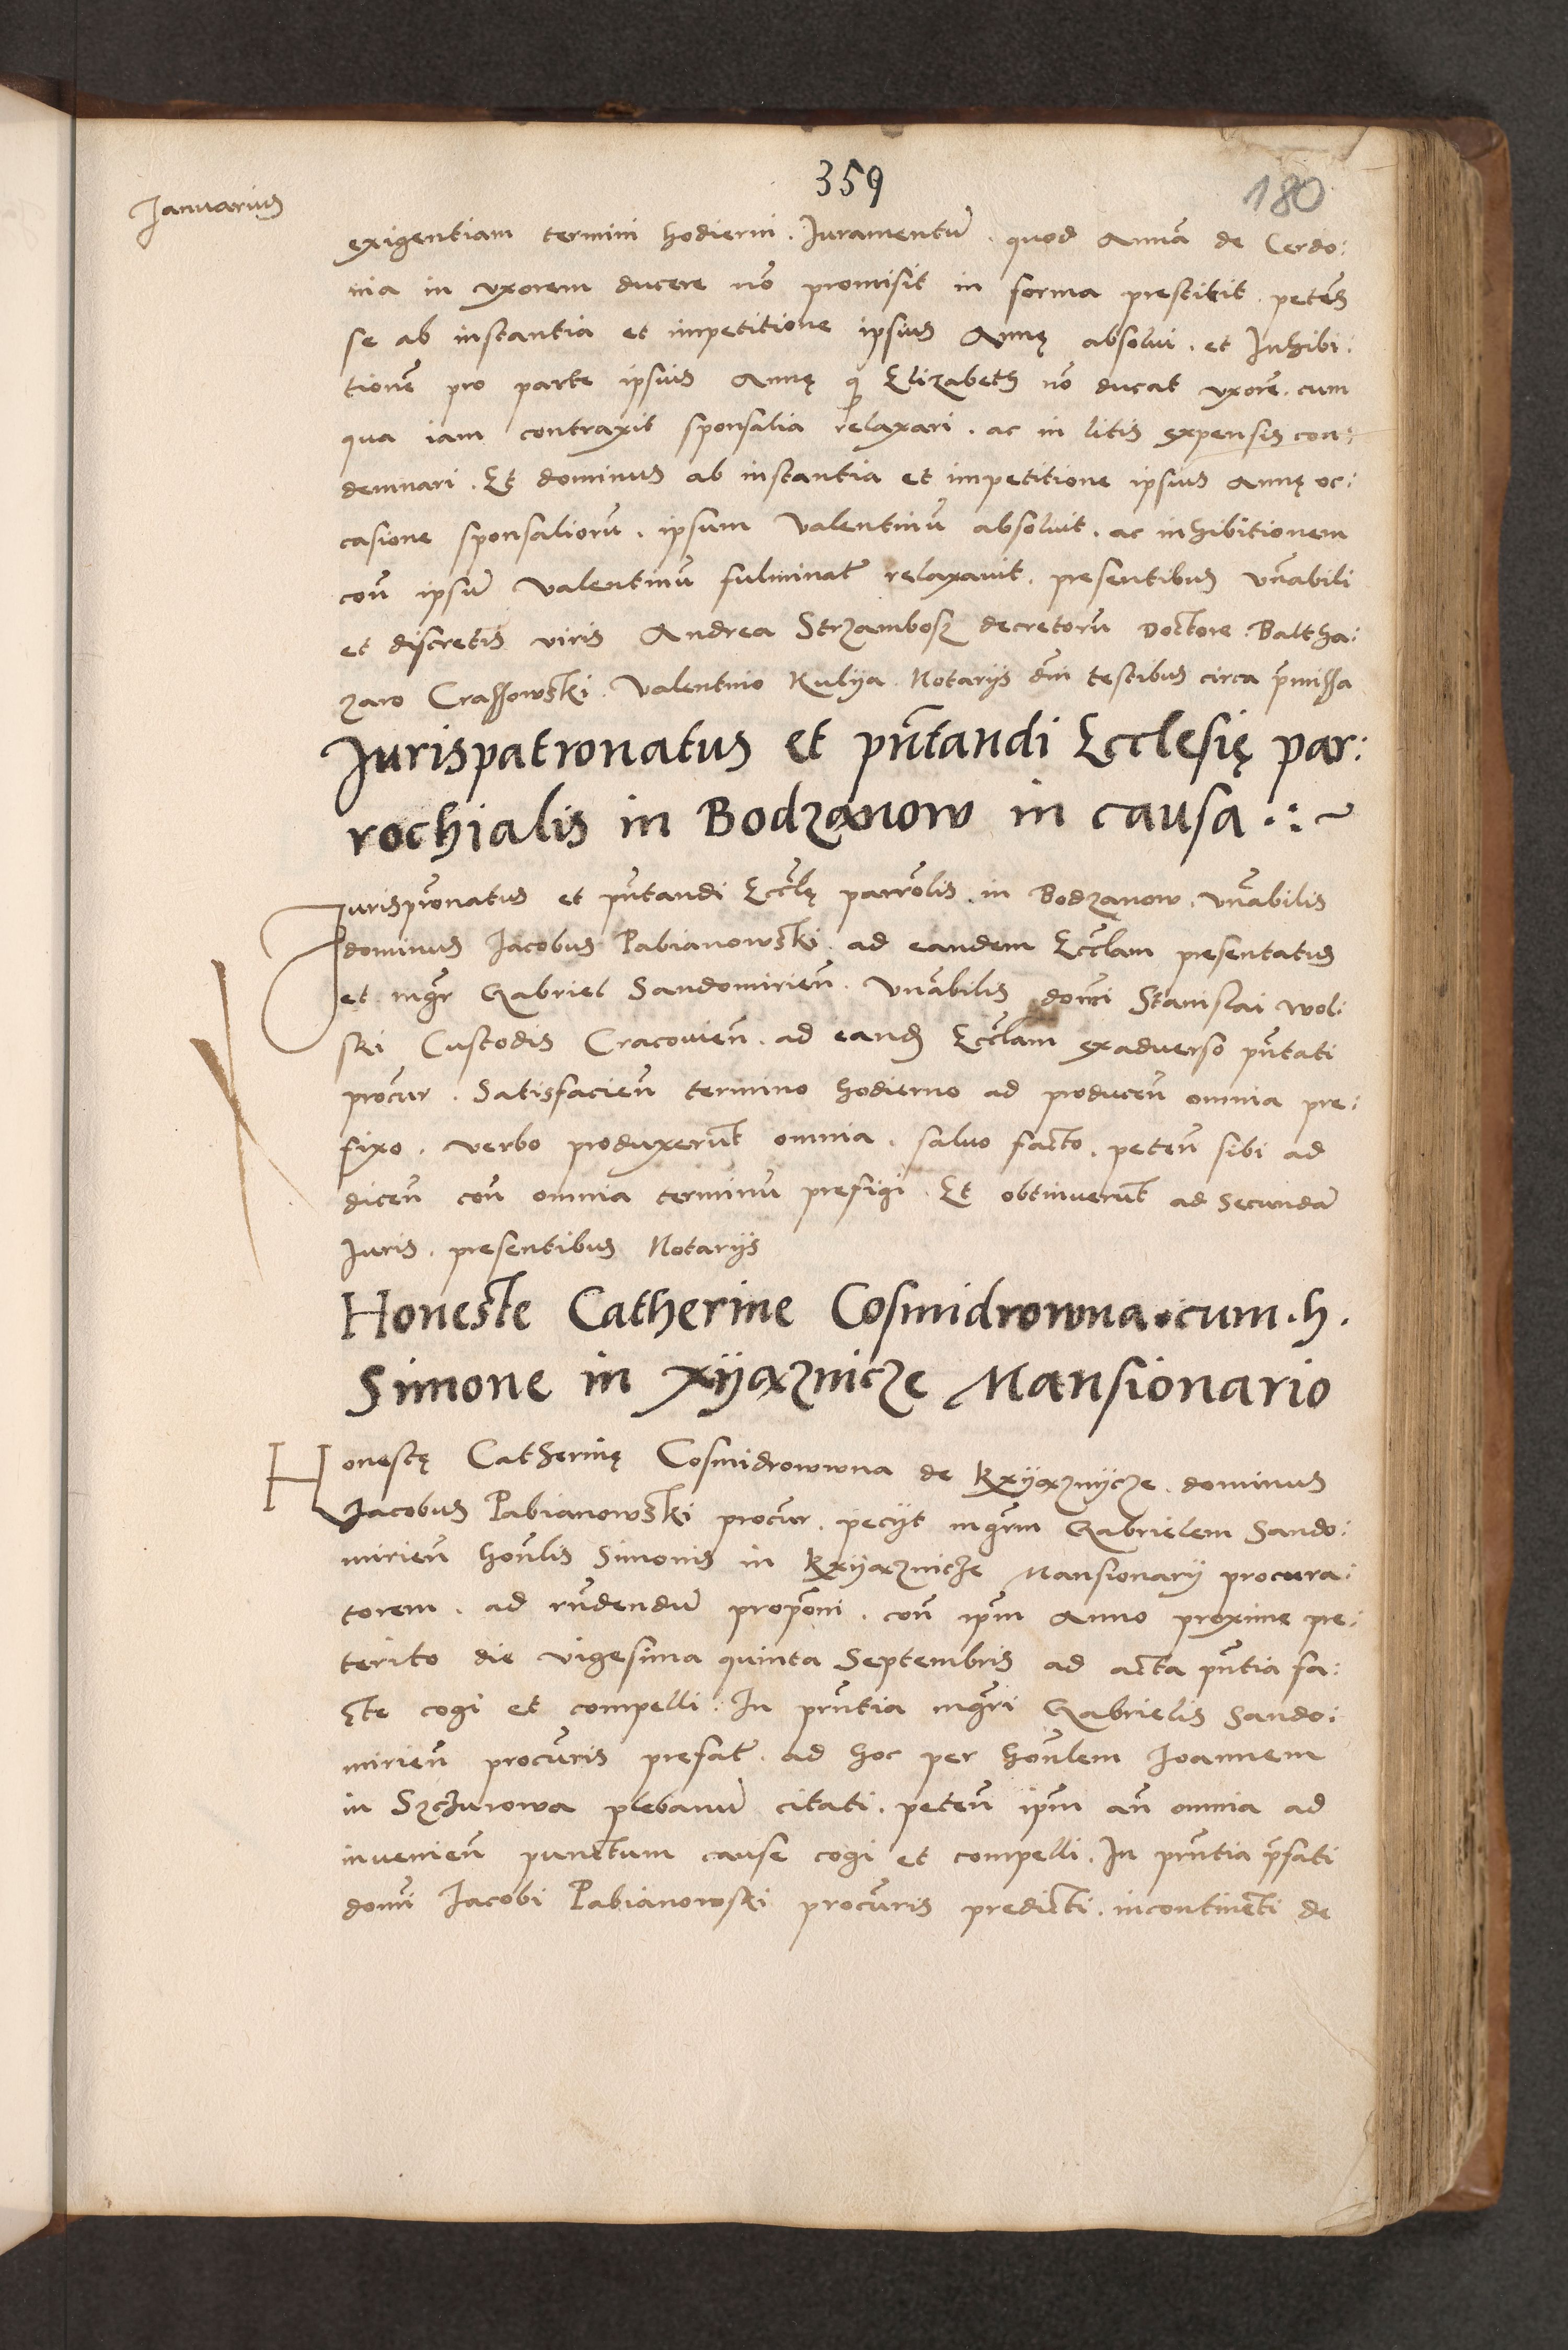 359
180
Januarius
exigentiam termini hodierni. Juramentū. quod Annā de Cerdo:
nia in uxorem ducere nō promisit in forma prestitit. petēs
se ab instantia et impetitione ipsius Annę absolui. et Inhibi:
tionē pro parte ipsius Annę ꝙ Elizabeth nō ducat uxorē. cum
qua iam contraxit sponsalia relaxari. ac in litis expensis con:
demnari. Et dominus ab instantia et impetitione ipsius Annę oc:
casione sponsaliorū. ipsum Valentinū absoluit. ac inhibitionem
coñ ipsū Valentinū fulminat̄ relaxavit. presentibus Vn̄abili
et discretis viris Andrea Strzambosz decretorū Doctore. Baltha:
zaro Crassowski. Valentino Kulya. Notarijs dm̄ testibus circa p̄missa
Jurispatronatus et pn̄tandi Ecclesię par:
rochialis in Bodzanow in causa
Jurispr̄onatus et pn̄tandi Eccl̄ę parrolīs. in Bodzanow. Vn̄abilis
dominus Jacobus Pabianowski. ad eandem Eccl̄am presentatus
et mgr̄ Gabriel Sandomirien̄. Vn̄abilis domī Stanislai Wol:
ski Custodis Cracovien̄. ad eand Eccl̄am exadverso pn̄tati
procur̄. Satisfacien̄ termino hodierno ad producen̄ omnia pre:
fixo. verbo produxerūt omnia. salvo facto. peten̄ sibi ad
dicen̄ con̄ omnia terminū prefigi. Et obtinuerūt ad secundā
Juris. presentibus Notarijs
Honeste Catherine Cosmidrowna. cum. h.
Simone in Xyąznicze Mansionario
Honestę Catherinę Cosmidrowwna de Kxyąznycze. dominus
Jacobus Pabianowski procur̄. pecijt mgr̄m Gabrielem Sando:
mirien̄ hon̄lis Simonis in Kxyąznicze Mansionarij procura:
torem. ad rn̄dendū prop̄oni. con̄ ipm̄ Anno proxime pre:
terito die vigesima quinta Septembris ad acta pn̄tia fa:
ctę cogi et compelli. In prn̄tia mgr̄i Gabrielis Sando:
mirien̄ procur̄is prefat̄. ad hoc per hon̄lem Joannem
in Szczurowa plebanū citati. peten̄ ipm̄ an̄ omnia ad
invenien̄ punctum cause cogi et compelli. In prn̄tia p̄fati
domī Jacobi Pabianowski procur̄is predicti. incontinēti de